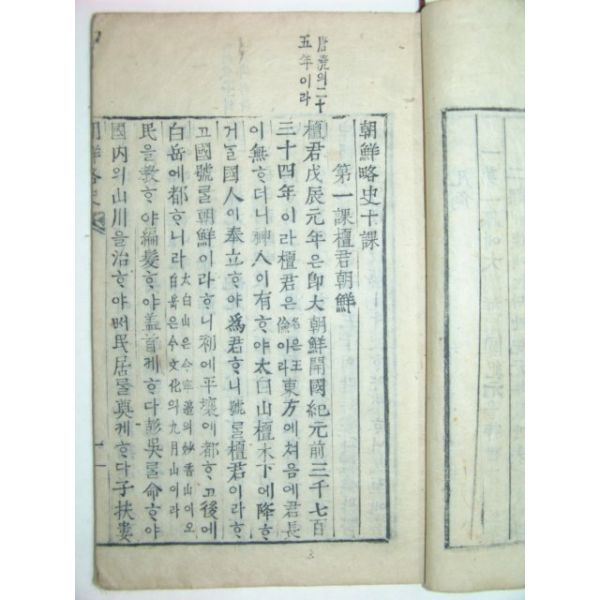 唐堯의二十
五年이라
朝鮮略史十課
第一課檀君朝鮮
檀君戊辰元年은卽大朝鮮開國紀元前三千七百
三十四年이라檀君은名은王
儉이라東方에쳐음에君長
이無ᄒᆞ더니神人이有ᄒᆞ야太白山檀木下에降ᄒᆞ
거ᄂᆞᆯ國人이奉立ᄒᆞ야爲君ᄒᆞ니號ᄅᆞᆯ檀君이라ᄒᆞ
고國號ᄅᆞᆯ朝鮮이라ᄒᆞ니初에平壤에都ᄒᆞ고後에
白岳에都ᄒᆞ니라太白山은今寧邊의妙香山이오
白岳은今文化의九月山이라
民을敎ᄒᆞ야編髮ᄒᆞ야盖首케ᄒᆞ다彭吳ᄅᆞᆯ命ᄒᆞ야
國內의山川을治ᄒᆞ야ᄡᅥ民居ᄅᆞᆯ奠케ᄒᆞ다子扶婁
朝鮮略史
一